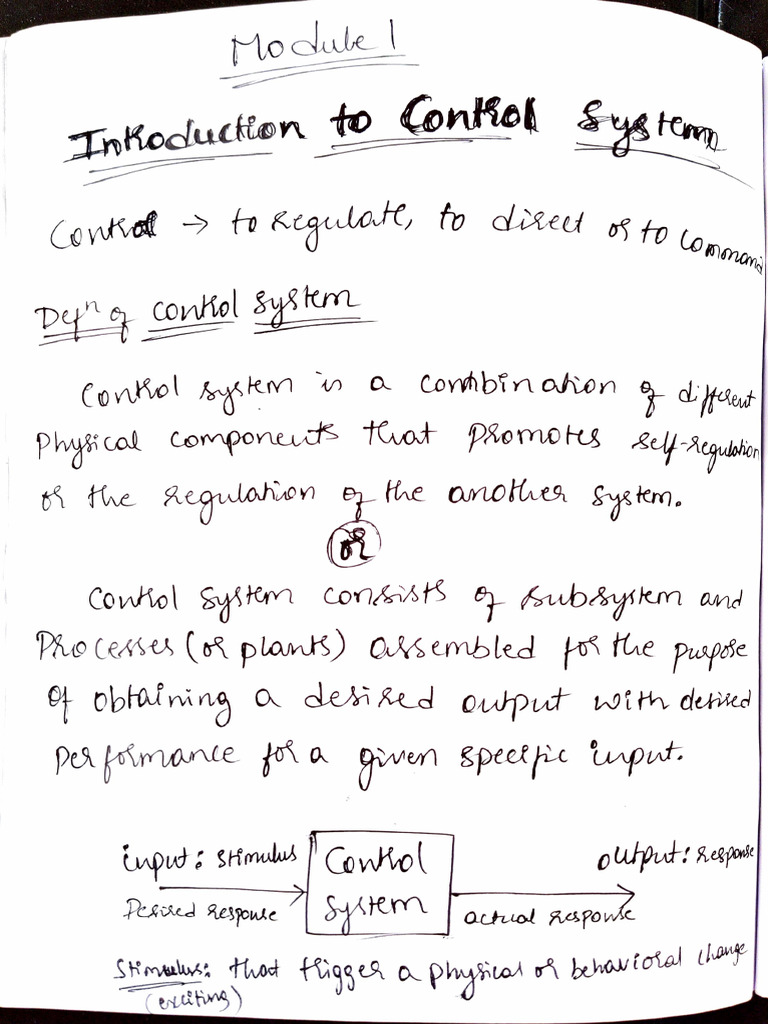 Module 1
Introduction to Control System
Control → to regulate, to direct or to command
Defⁿ of control system
Control system is a combination of different
Physical components that promotes self-regulation
or the regulation of the another system.
or
Control system consists of subsystem and
Processes (or plants) assembled for the purpose
of obtaining a desired output with desired
performance for a given specific input.
input: stimulus
Desired response
Control
system
output: response
actual response
Stimulus: that trigger a physical or behavioral change
(exciting)